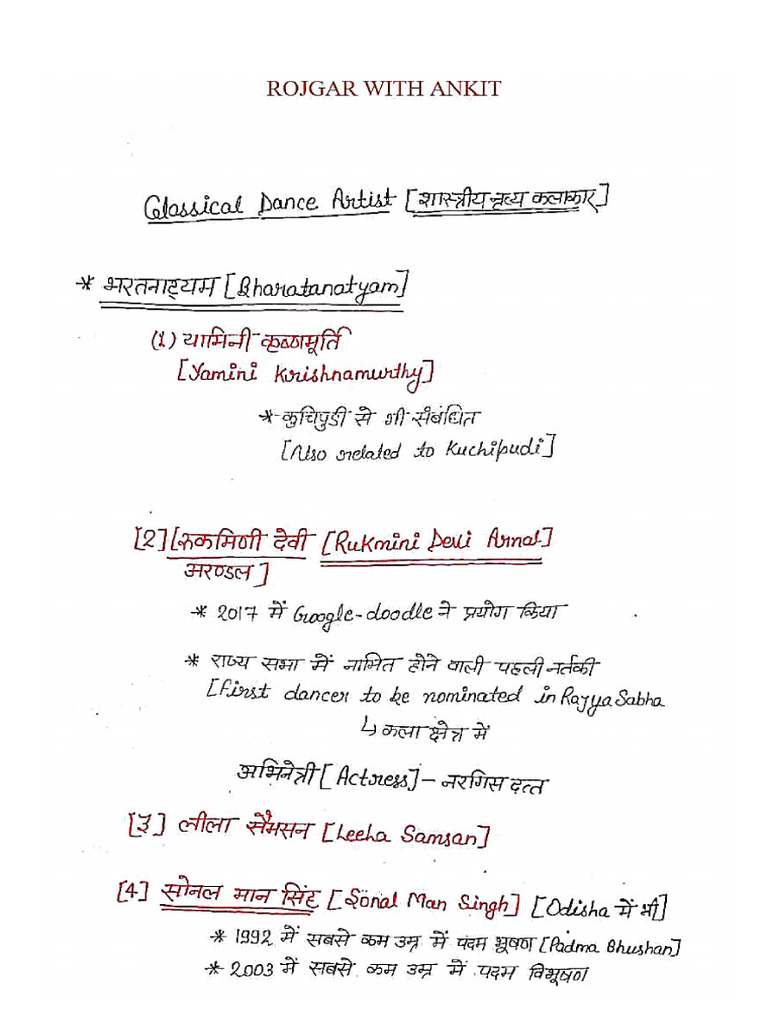 ROJGAR WITH ANKIT
Classical Dance Artist [शास्त्रीय नृत्य कलाकार]
* भरतनाट्यम [Bharatanatyam]
(1) यामिनी कृष्णमूर्ति
[Yamini Krishnamurthy]
* कुचिपुडी से भी संबंधित
[Also related to Kuchipudi]
[2] [रुकमिणी देवी [Rukmini Devi Arnal]
अरण्डल]
* 2017 में Google-doodle ने प्रयोग किया
* राज्य सभा में नामित होने वाली पहली नर्तकी
[First dancer to be nominated in Rajya Sabha
↳ कला क्षेत्र में
अभिनेत्री [Actress] – नरगिस दत्त
[3] लीला सैमसन [Leeha Samsan]
[4] सोनल मान सिंह [Sonal Man Singh] [Odisha में भी]
* 1992 में सबसे कम उम्र में पदम भूषण [Padma Bhushan]
* 2003 में सबसे कम उम्र में पदम विभूषण